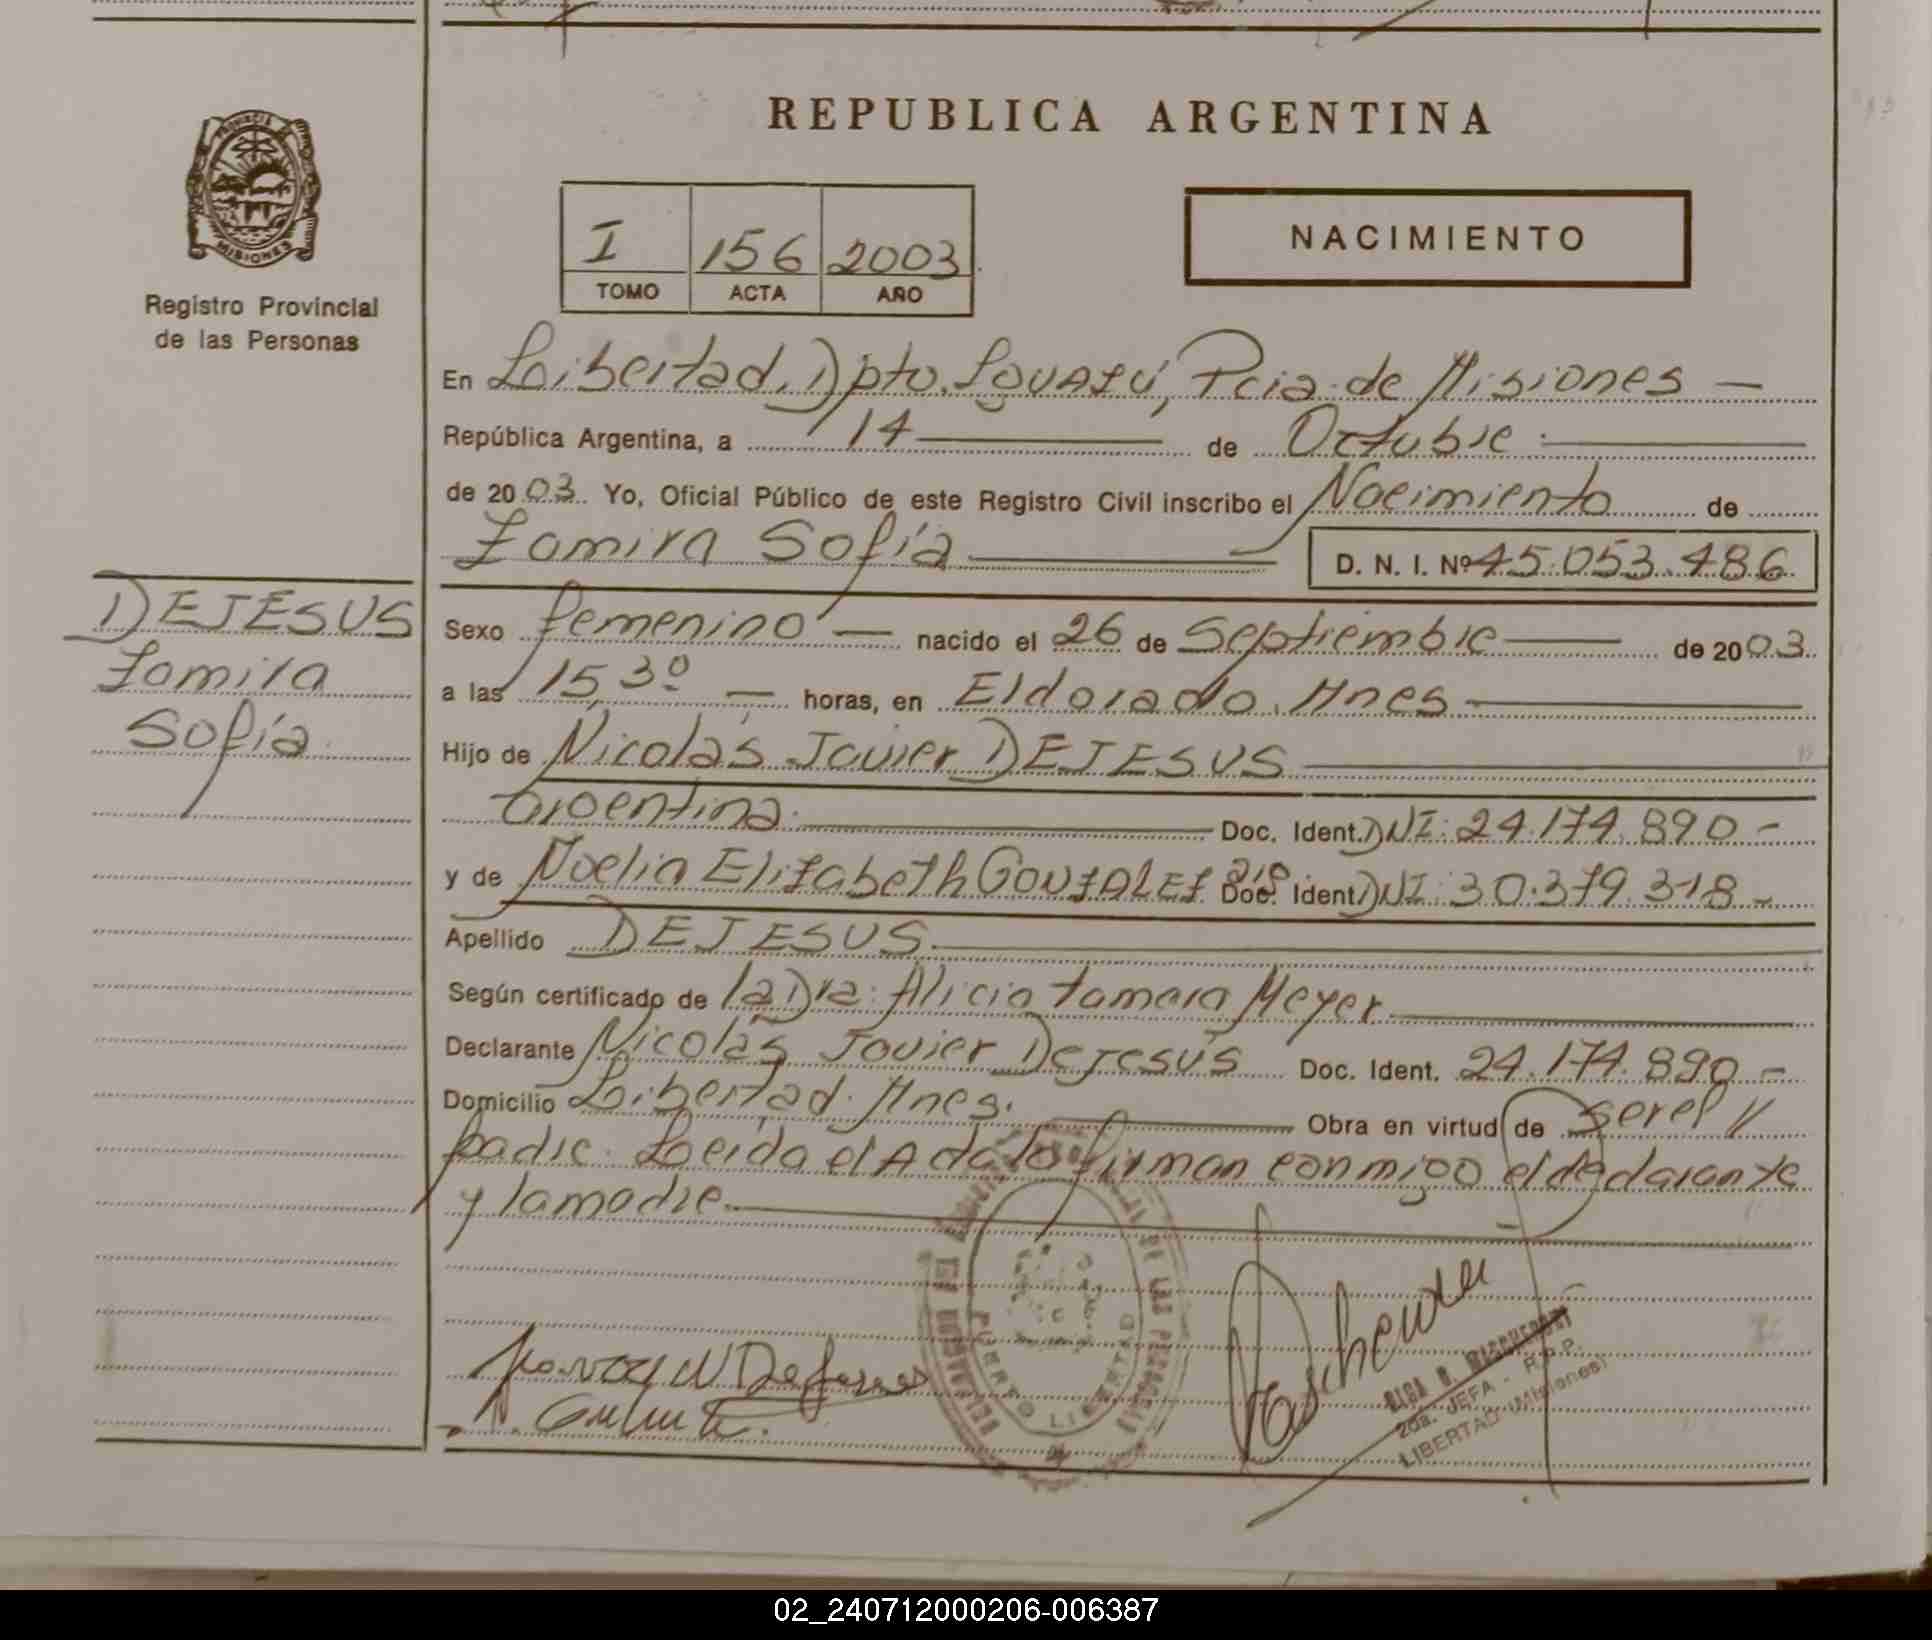 REPUBLICA ARGENTINA
PROVINCIA
MISIONES
Registro Provincial
de las Personas
I 156 2003
TOMO ACTA AÑO
NACIMIENTO
En Libertad, Dpto. Iguazú, Pcia. de Misiones —
República Argentina, a 14 de Octubre
de 2003 Yo, Oficial Público de este Registro Civil inscribo el Nacimiento de
Zamira Sofía D. N. I. Nº 45.053.486
DEJESUS
Zamira
Sofía
Sexo femenino — nacido el 26 de Septiembre de 2003
a las 15,30 — horas, en Eldorado. Mnes
Hijo de Nicolás Javier DEJESUS
argentina. Doc. Ident. DNI: 24.174.890.-
y de Noelia Elizabeth GONZALEZ Doc. Ident. DNI: 30.379.318.-
Apellido DEJESUS
Según certificado de la Dra. Alicia Tamara Meyer
Declarante Nicolás Javier Dejesús Doc. Ident. 24.174.890.-
Domicilio Libertad. Mnes. Obra en virtud de ser el
padre. Leída el Acta la firman conmigo el declarante
y la madre.
PUERTO LIBERTAD
2da. JEFA - R.P.P.
LIBERTAD (Misiones)
02_240712000206-006387